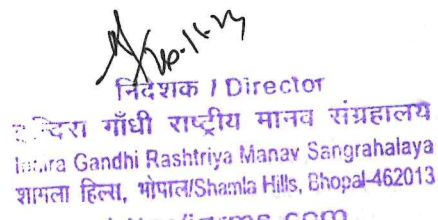 20-11-23
निदेशक / Director
इन्दिरा गाँधी राष्ट्रीय मानव संग्रहालय
Indira Gandhi Rashtriya Manav Sangrahalaya
शामला हिल्स, भोपाल/Shamla Hills, Bhopal-462013